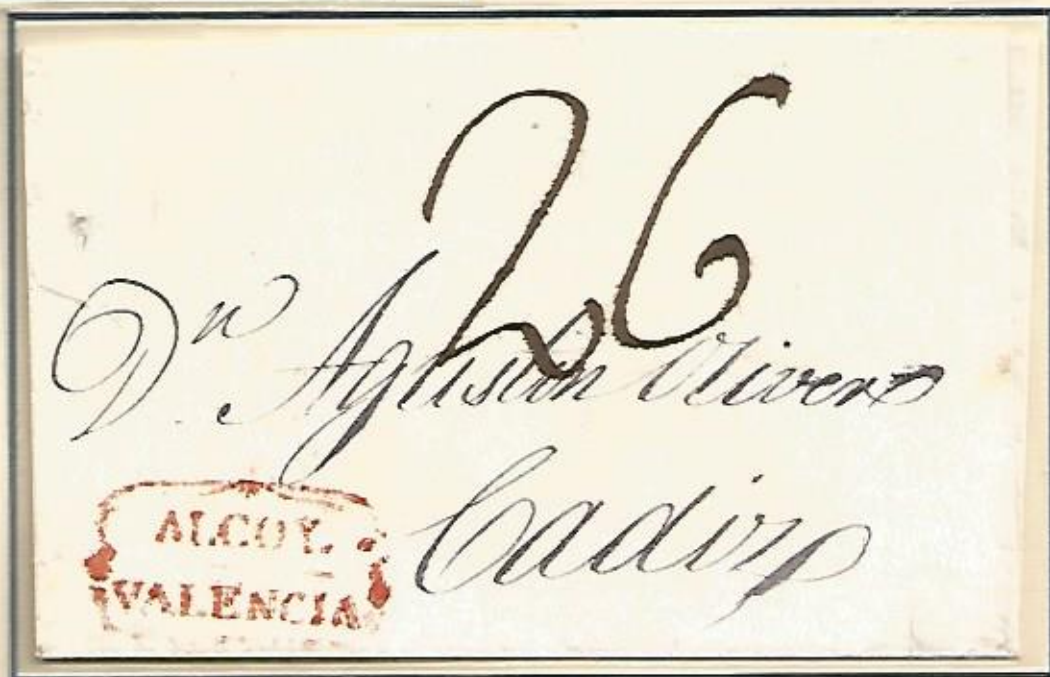 26
Dn. Agustin
Cadiz
ALCOY.
VALENCIA